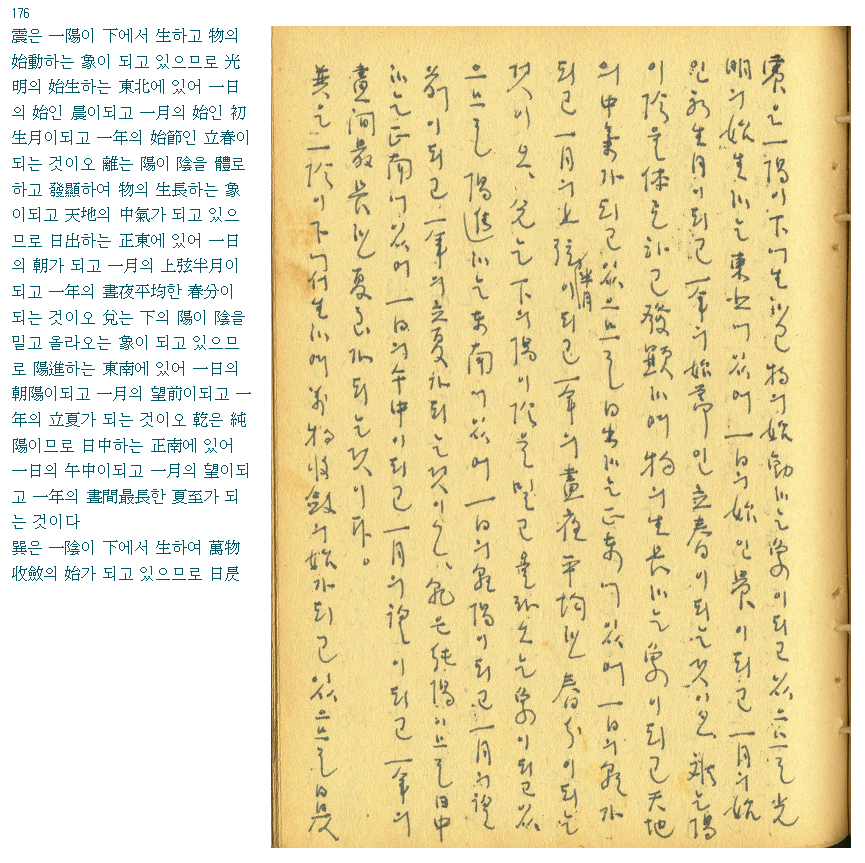 176
震은 一陽이 下에서 生하고 物의
始動하는 象이 되고 있으므로 光
明의 始生하는 東北에 있어 一日
의 始인 晨이되고 一月의 始인 初
生月이되고 一年의 始節인 立春이
되는 것이오 離는 陽이 陰을 體로
하고 發顯하여 物의 生長하는 象
이되고 天地의 中氣가 되고 있으
므로 日出하는 正東에 있어 一日
의 朝가 되고 一月의 上弦半月이
되고 一年의 晝夜平均한 春分이
되는 것이오 兌는 下의 陽이 陰을
밀고 올라오는 象이 되고 있으므
로 陽進하는 東南에 있어 一日의
朝陽이되고 一月의 望前이되고 一
年의 立夏가 되는 것이오 乾은 純
陽이므로 日中하는 正南에 있어
一日의 午中이되고 一月의 望이되
고 一年의 晝間最長한 夏至가 되
는 것이다
巽은 一陰이 下에서 生하여 萬物
收斂의 始가 되고 있으므로 日昃
震은 一陽이 下에서 生하고 物의 始動하는 象이되고 있으므로 光
明의 始生하는 東北에 있어 一日의 始인 晨이되고 一月의 始
인 初生月이되고 一年의 始節인 立春이되는 것이오 離는 陽
이 陰을 体로하고 發顯하여 物의 生長하는 象이되고 天地
의 中氣가되고 있으므로 日出하는 正東에 있어 一日의 朝가
되고 一月의 上弦半月이되고 一年의 晝夜平均한 春分이되는
것이오 兌는 下의 陽이 陰을 밀고 올라오는 象이되고 있
으므로 陽進하는 東南에 있어 一日의 朝陽이되고 一月의 望
前이되고 一年의 立夏가되는 것이오 乾은 純陽이므로 日中
하는 正南에 있어 一日의 午中이되고 一月의 望이되고 一年의
晝間最長한 夏至가되는 것이다。
巽은 一陰이 下에서 生하여 萬物收斂의 始가되고 있으므로 日昃